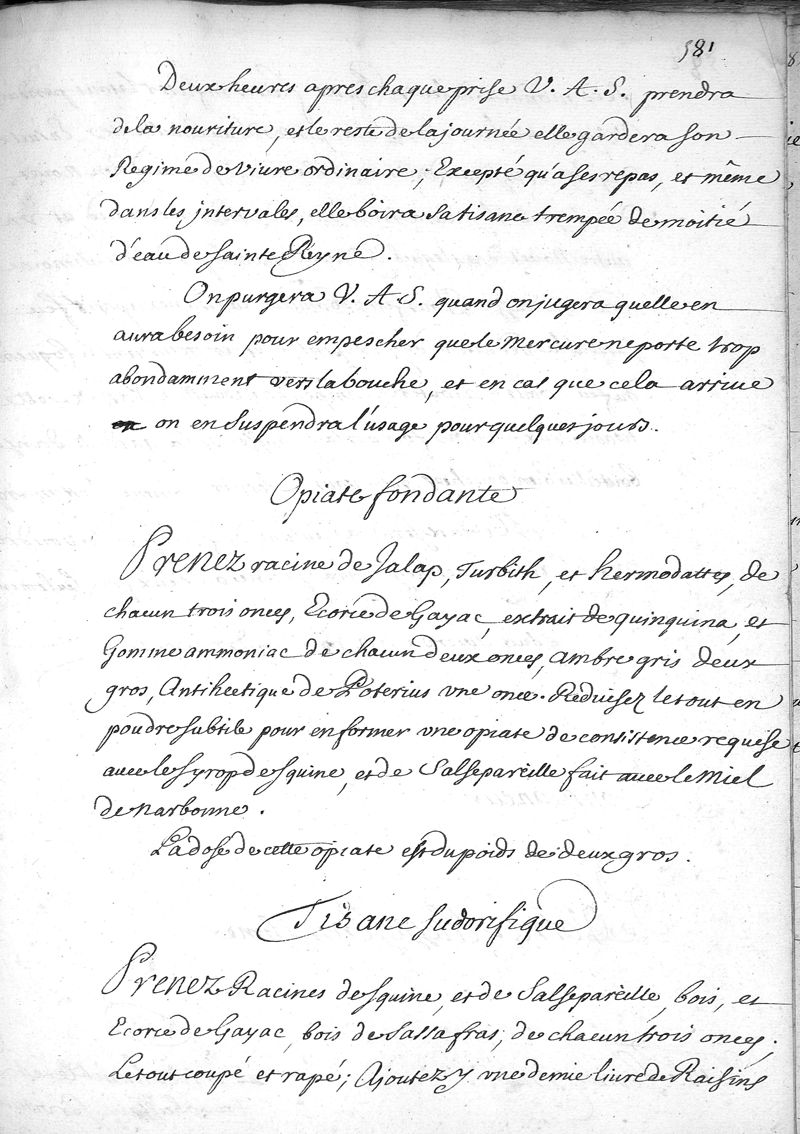 581
Deux heures apres chaque prise V. A. S. prendra
de la nouriture, et le reste de la journée elle gardera son
Regime de vivre ordinaire; Excepté qu'a ses repas, et même
dans les intervales, elle boira sa tisane trempée de moitié
d'eau de Sainte Reyne.
On purgera V. A. S. quand on jugera quelle en
aura besoin pour empescher que le mercure ne porte trop
abondamment vers la bouche, et en cas que cela arrive
on en suspendra l'usage pour quelques jours.
Opiate fondante
Prenez racine de Jalap, Turbith, et hermodattes, de
chacun trois onces, Ecorce de Gayac, extrait de quinquina, et
Gomme ammoniac de chacun deux onces, ambre gris deux
gros, Antihectique de Poterius une once. Reduisez le tout en
poudre subtile pour en former une opiate de consistence requise
avec le syrop de squine, et de salsepareille fait avec le Miel
de narbonne.
La dose de cette opiate est du poids de deux gros.
Tisane sudorifique
Prenez Racines de squine, et de salsepareille, bois, et
Ecorce de Gayac, bois de sassafras, de chacun trois onces,
Le tout coupé et rapé; Ajoutez y une demie livre de Raisins